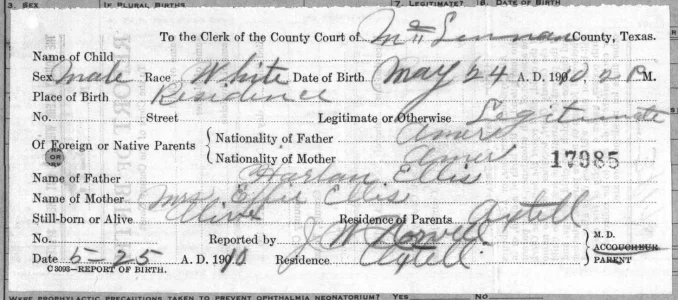 3. SEX IF PLURAL BIRTHS 7. LEGITIMATE? 8. DATE OF BIRTH
To the Clerk of the County Court of McLennan County, Texas.
Name of Child
Sex Male Race White Date of Birth May 24 A. D. 1910, 2 P M.
Place of Birth Residence
No. Street Legitimate or Otherwise Legitimate
Of Foreign or Native Parents { Nationality of Father Amer
Nationality of Mother Amer 17985
Name of Father Harlan Ellis
Name of Mother Mrs Effie Ellis
Still-born or Alive Alive Residence of Parents Axtell
No. Reported by J W M. D.
ACCOUCHEUR
Date 5-25 A. D. 1910 Residence Axtell. PARENT
C3093—REPORT OF BIRTH.
WERE PROPHYLACTIC PRECAUTIONS TAKEN TO PREVENT OPHTHALMIA NEONATORIUM? YES NO